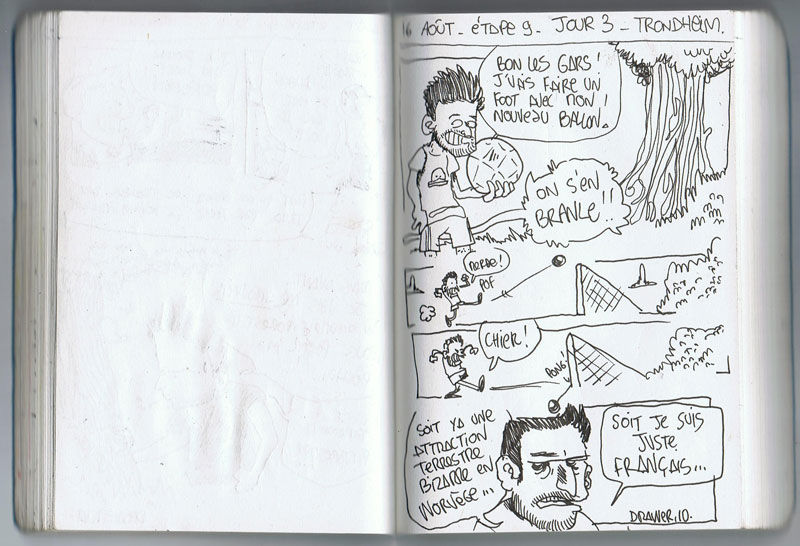 16 AOÛT - ÉTAPE 9 - JOUR 3 - TRONDHEIM.
BON LES GARS!
J'VAIS FAIRE UN
FOOT AVEC MON
NOUVEAU BALLON.
ON S'EN
BRANLE!!
MERDE!
POF
CHIER!
PONG!
SOIT YA UNE
ATTRACTION
TERRESTRE
BIZARRE EN
NORVÈGE...
SOIT JE SUIS
JUSTE
FRANÇAIS...
DRAWER.10.